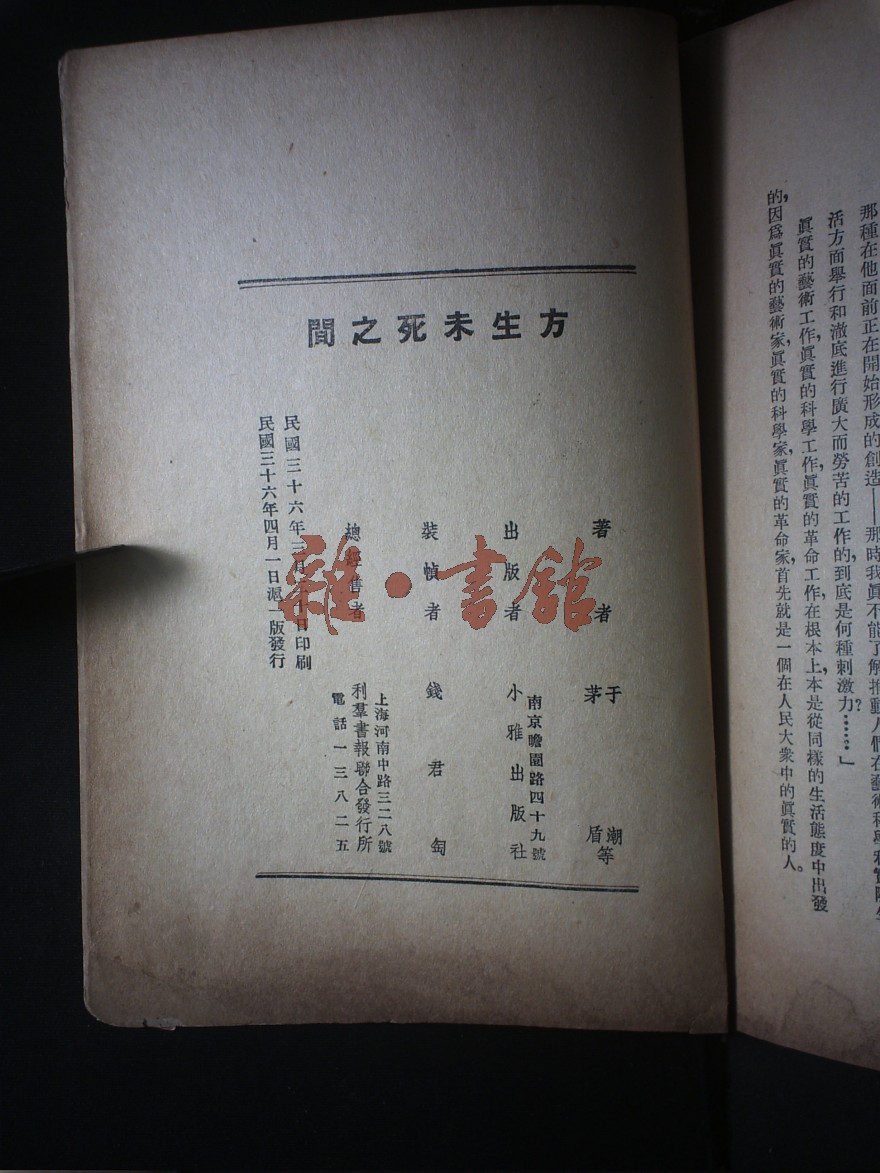 那種在他面前正在開始形成的創造——那時我眞不能了解推動人們在藝術科學和實際生
活方面舉行和澈底進行廣大而勞苦的工作的,到底是何種刺激力?……」
眞實的藝術工作,眞實的科學工作,眞實的革命工作,在根本上,本是從同樣的生活態度中出發
的,因爲眞實的藝術家,眞實的科學家,眞實的革命家,首先就是一個在人民大衆中的眞實的人。
方生未死之間
著者 于潮 茅盾等
南京瞻園路四十九號
出版者 小雅出版社
裝幀者 錢君匋
上海河南中路三二八號
總經售者 利羣書報聯合發行所
電話一三八二五
民國三十六年三月十日印刷
民國三十六年四月一日滬一版發行
雜·書館